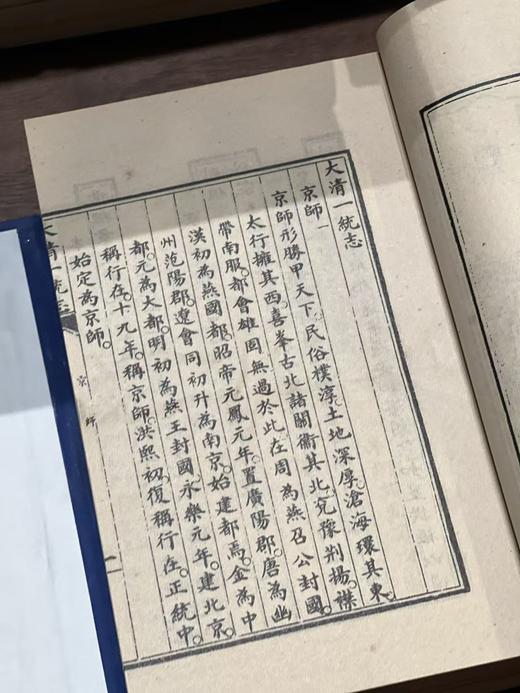 大清一統志
京師一
京師形勝甲天下。民俗樸淳。土地深厚。滄海環其東。
太行擁其西。喜峯古北諸關衛其北。兗豫荆揚。襟
帶南服。都會雄固無過於此。在周為燕召公封國。
漢初為燕國都。昭帝元鳳元年。置廣陽郡。唐為幽
州范陽郡。遼會同初升為南京。始建都焉。金為中
都。元為大都。明初為燕王封國。永樂元年。建北京。
稱行在。十九年。稱京師。洪熙初。復稱行在。正統中。
始定為京師。
大清一統志
京師
一